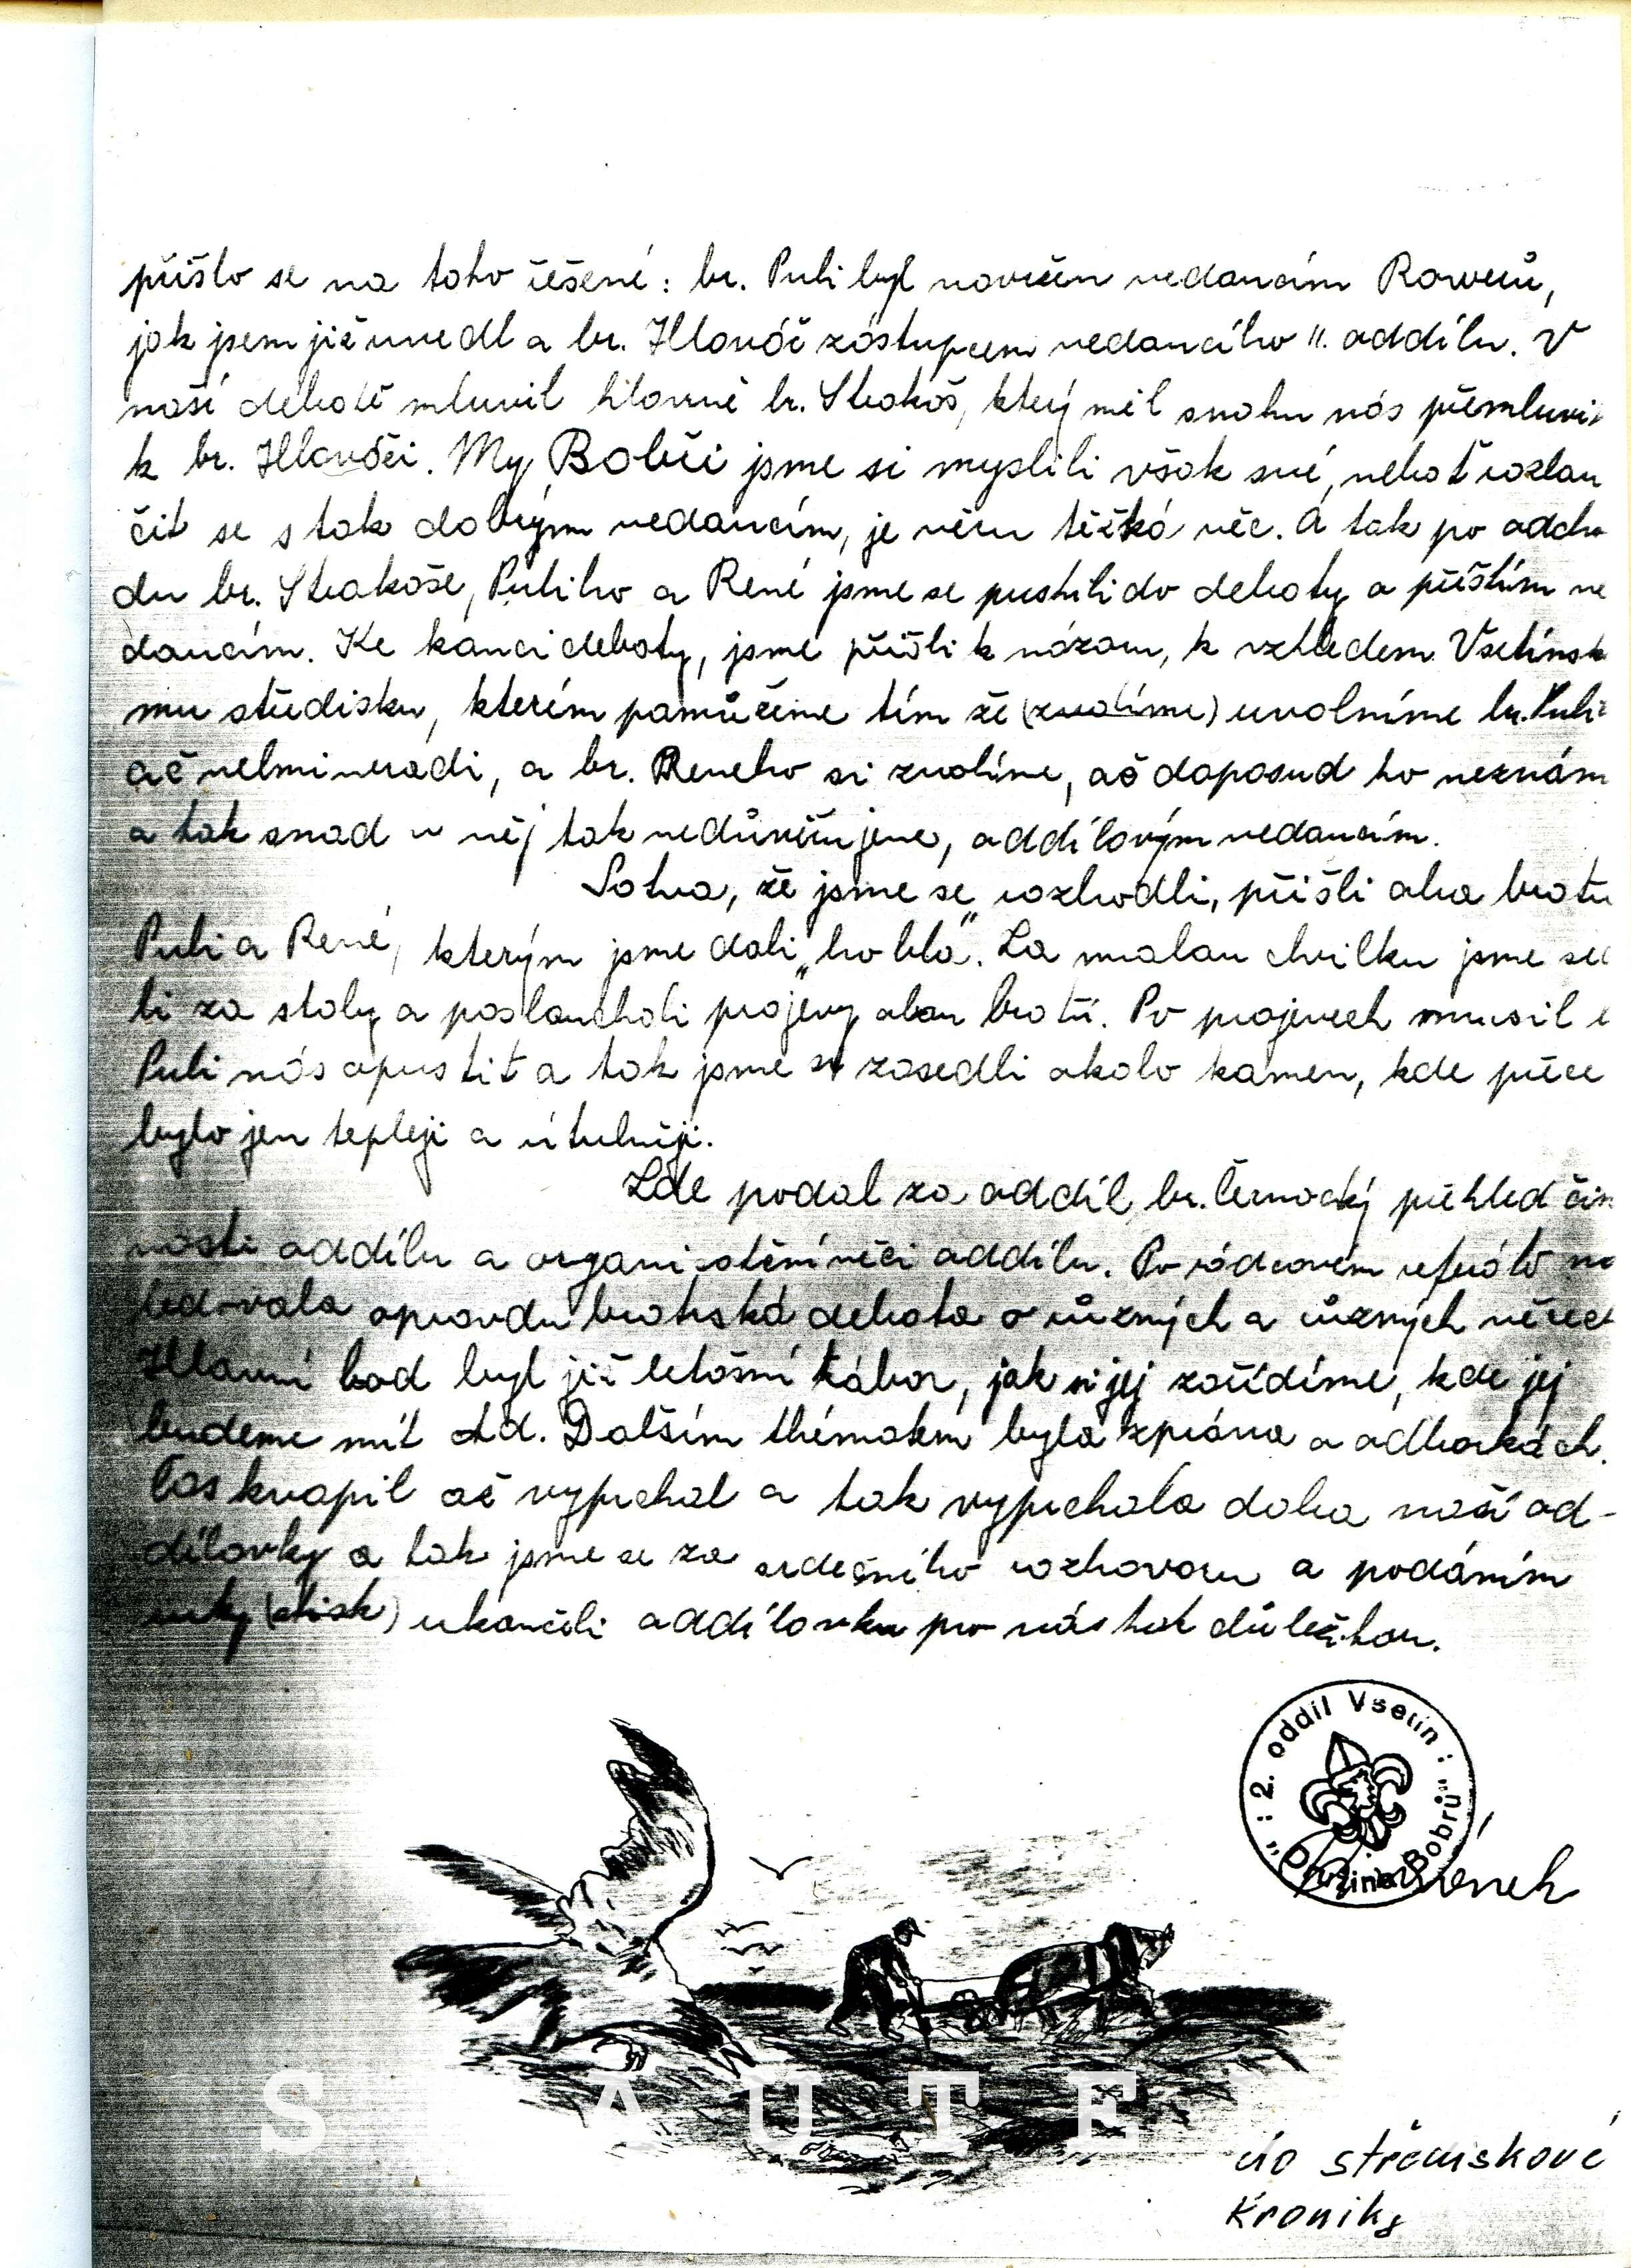 přišlo se na toho řešené: br. Puli byl navržen vedoucím Roverů,
jak jsem již uvedl a br. Hlaváč zástupcem vedoucího II. oddílu. V
naší debatě mluvil hlavně br. Strakoš, který měl snahu nás přemluvit
k br. Hlaváči. My, Bobři jsme si myslili však své, neboť rozlou
čit se s tak dobrým vedoucím, je věru těžká věc. A tak po odcho
du br. Strakoše, Puliho a René jsme se pustili do debaty o příštím ve
doucím. Ke konci debaty, jsme přišli k názoru, k vzhledem Vsetínské
mu středisku, kterém pomůžeme tím že (zvolíme) uvolníme br. Puli
ač velmi neradi, a br. Reneho si zvolíme, ač doposud ho neznám
a tak snad v něj tak nedůvěřujeme, oddílovým vedoucím.
Sotva, že jsme se rozhodli, přišli oba bratři
Puli a René, kterým jsme dali „hobla". Za malou chvilku jsme se
li za stoly a poslouchali projevy obou bratří. Po projevech musil
Puli nás opustit a tak jsme si zasedli okolo kamen, kde přece
bylo jen tepleji a útulněji.
Zde podal za oddíl br. Černocký přehled čin
nosti oddílu a organisačními věci oddílu. Po rádcovém referátě ná
ledovala opravdu bratrská debata o různých a různých věcech
Hlavní bod byl již letošní tábor, jak si jej zařídíme, kde jej
budeme mít atd. Dalším thématem byla zpráva o odborkách.
Čas kvapil až vyprchal a tak vyprchala doba naší od-
dílovky a tak jsme se za srdečního rozhovoru a podáním
ruky (stisk) ukončili oddílovku pro nás tak důležitou.
: 2. oddíl Vsetín :
„Družina Bobrů"
S A U T E
do střediskové
Kroniky